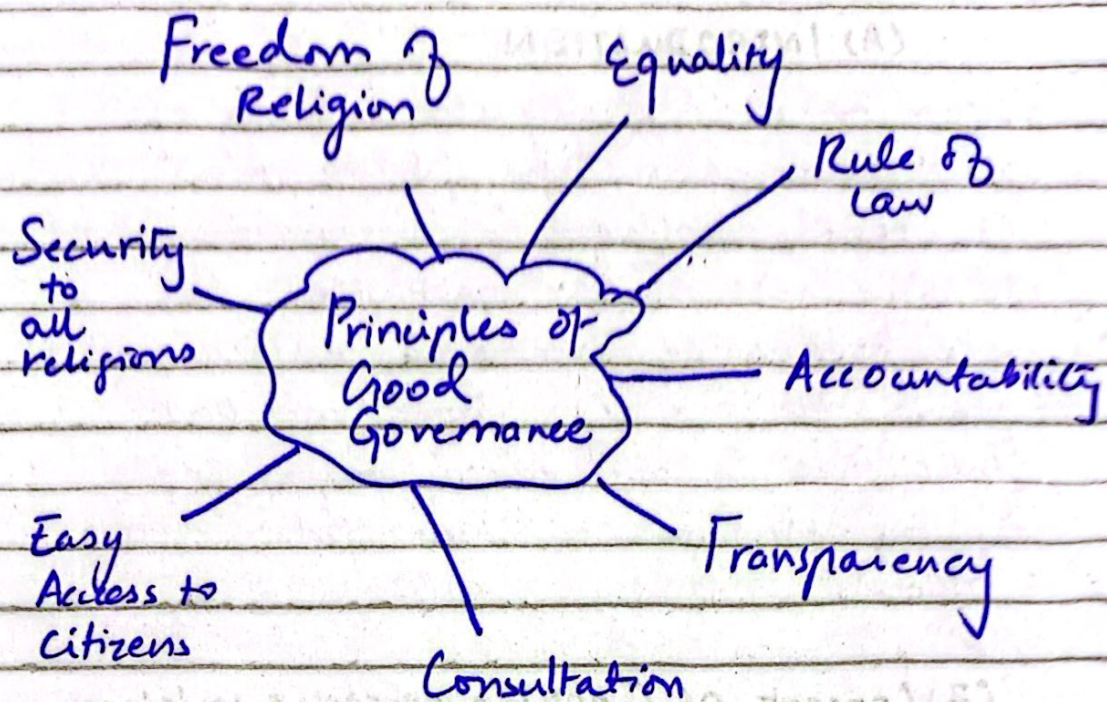 Freedom of
Religion
Equality
Rule of
Law
Security
to
all
religions
Principles of
Good
Governance
Accountability
Easy
Access to
Citizens
Transparency
Consultation